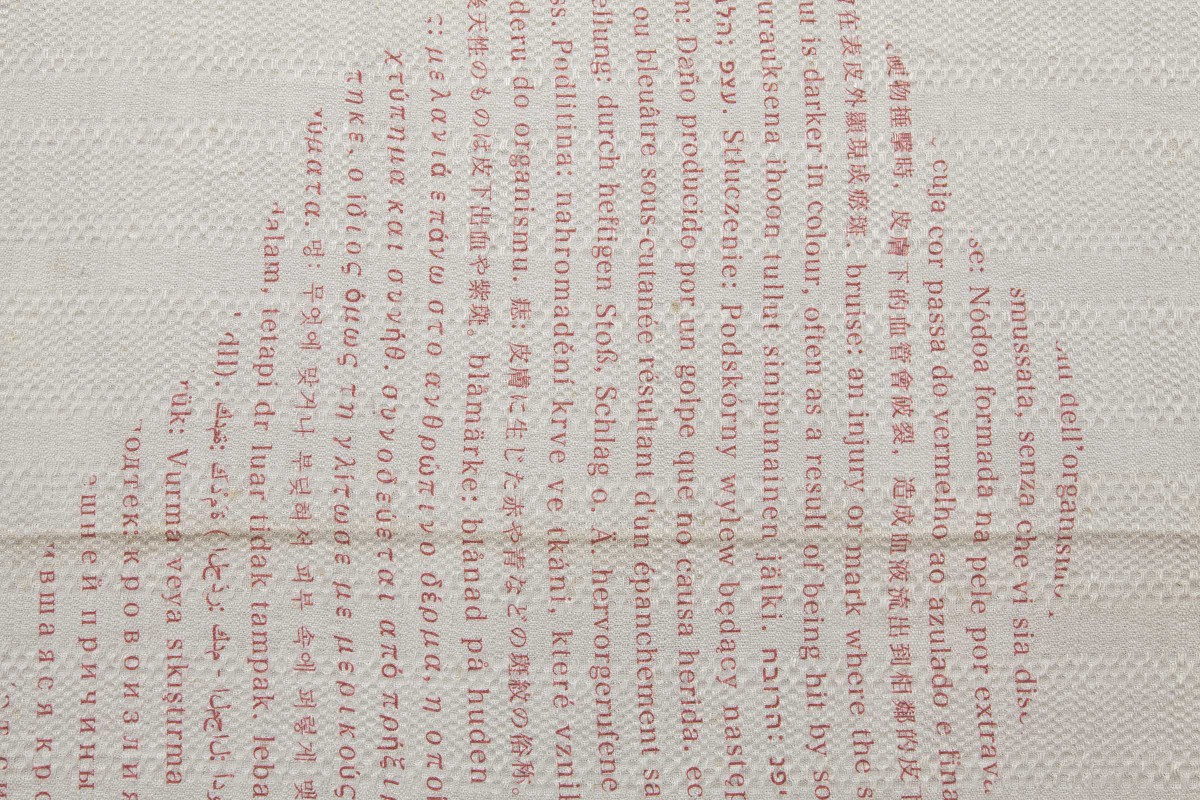 dell'organismo
smussata, senza che vi sia disc
se: Nódoa formada na pele por extrava
cuja cor passa do vermelho ao azulado e fina
硬物捶擊時，皮膚下的血管會破裂，造成血液流出到相鄰的皮下
在表皮外顯現成瘀斑. bruise: an injury or mark where the s
ut is darker in colour, often as a result of being hit by so
urauksena ihoon tullut sinipunainen jälki.
Stłuczenie: Podskórny wylew będący następ
n: Daño producido por un golpe que no causa herida. ec
ou bleuâtre sous-cutanée résultant d'un épanchement sa
ellung: durch heftigen Stoß, Schlag o. Ä. hervorgerufene
ss. Podlitina: nahromadění krve ve tkáni, které vznik
deru do organismu. 痣: 皮膚に生じた赤や青などの斑紋の俗称。
後天性のものは皮下出血や紫斑。blåmärke: blånad på huden
ς: μελανιά επάνω στο ανθρώπινο δέρμα, η οποί
χτύπημα και συνήθ. συνοδεύεται από πρήξι
τηκε. ο ίδιος όμως τη γλίτωσε με μερικούς
ύματα. 멍: 무엇에 맞거나 부딪쳐서 피부 속에 퍼렇게 맺
dalam, tetapi dr luar tidak tampak. leba
dll).
rük: Vurma veya sıkıştırma
одтек: кровоизлия
ешней причины
вшаяся кро